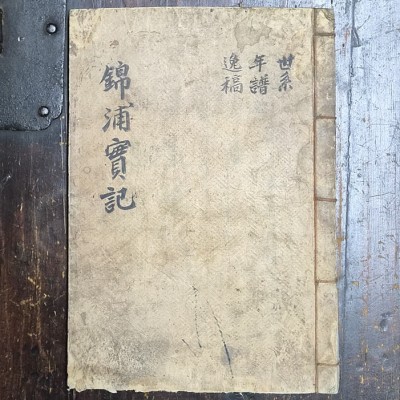 世系
年譜
逸稿
錦浦實記